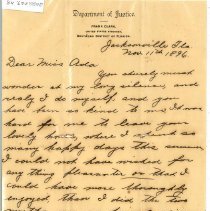 Department of Justice,
FRANK CLARK,
UNITED STATES ATTORNEY,
SOUTHERN DISTRICT OF FLORIDA.
Jacksonville Fla.
Nov. 11th 1896
Dear Miss Ada
You surely must
wonder at my long silence, and
really I do myself, and you
have been so kind to me. It was
hard for me to leave your
lovely home, where I spent so
many happy days this summer
I could not have wished for
any thing pleasanter or that I
could have more thoroughly
enjoyed, than I did the two